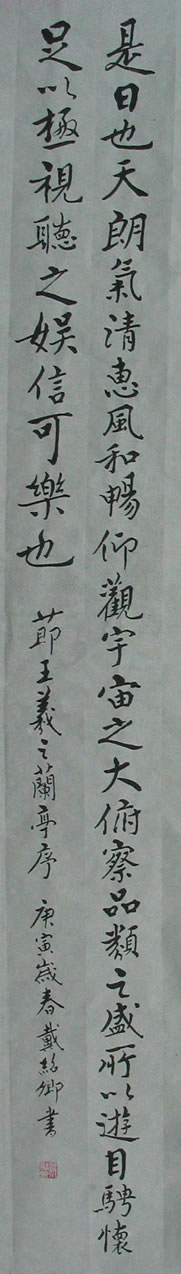 是日也天朗氣清惠風和暢仰觀宇宙之大俯察品類之盛所以遊目騁懷
足以極視聽之娱信可樂也
節王羲之蘭亭序 庚寅歲春戴紹卿書